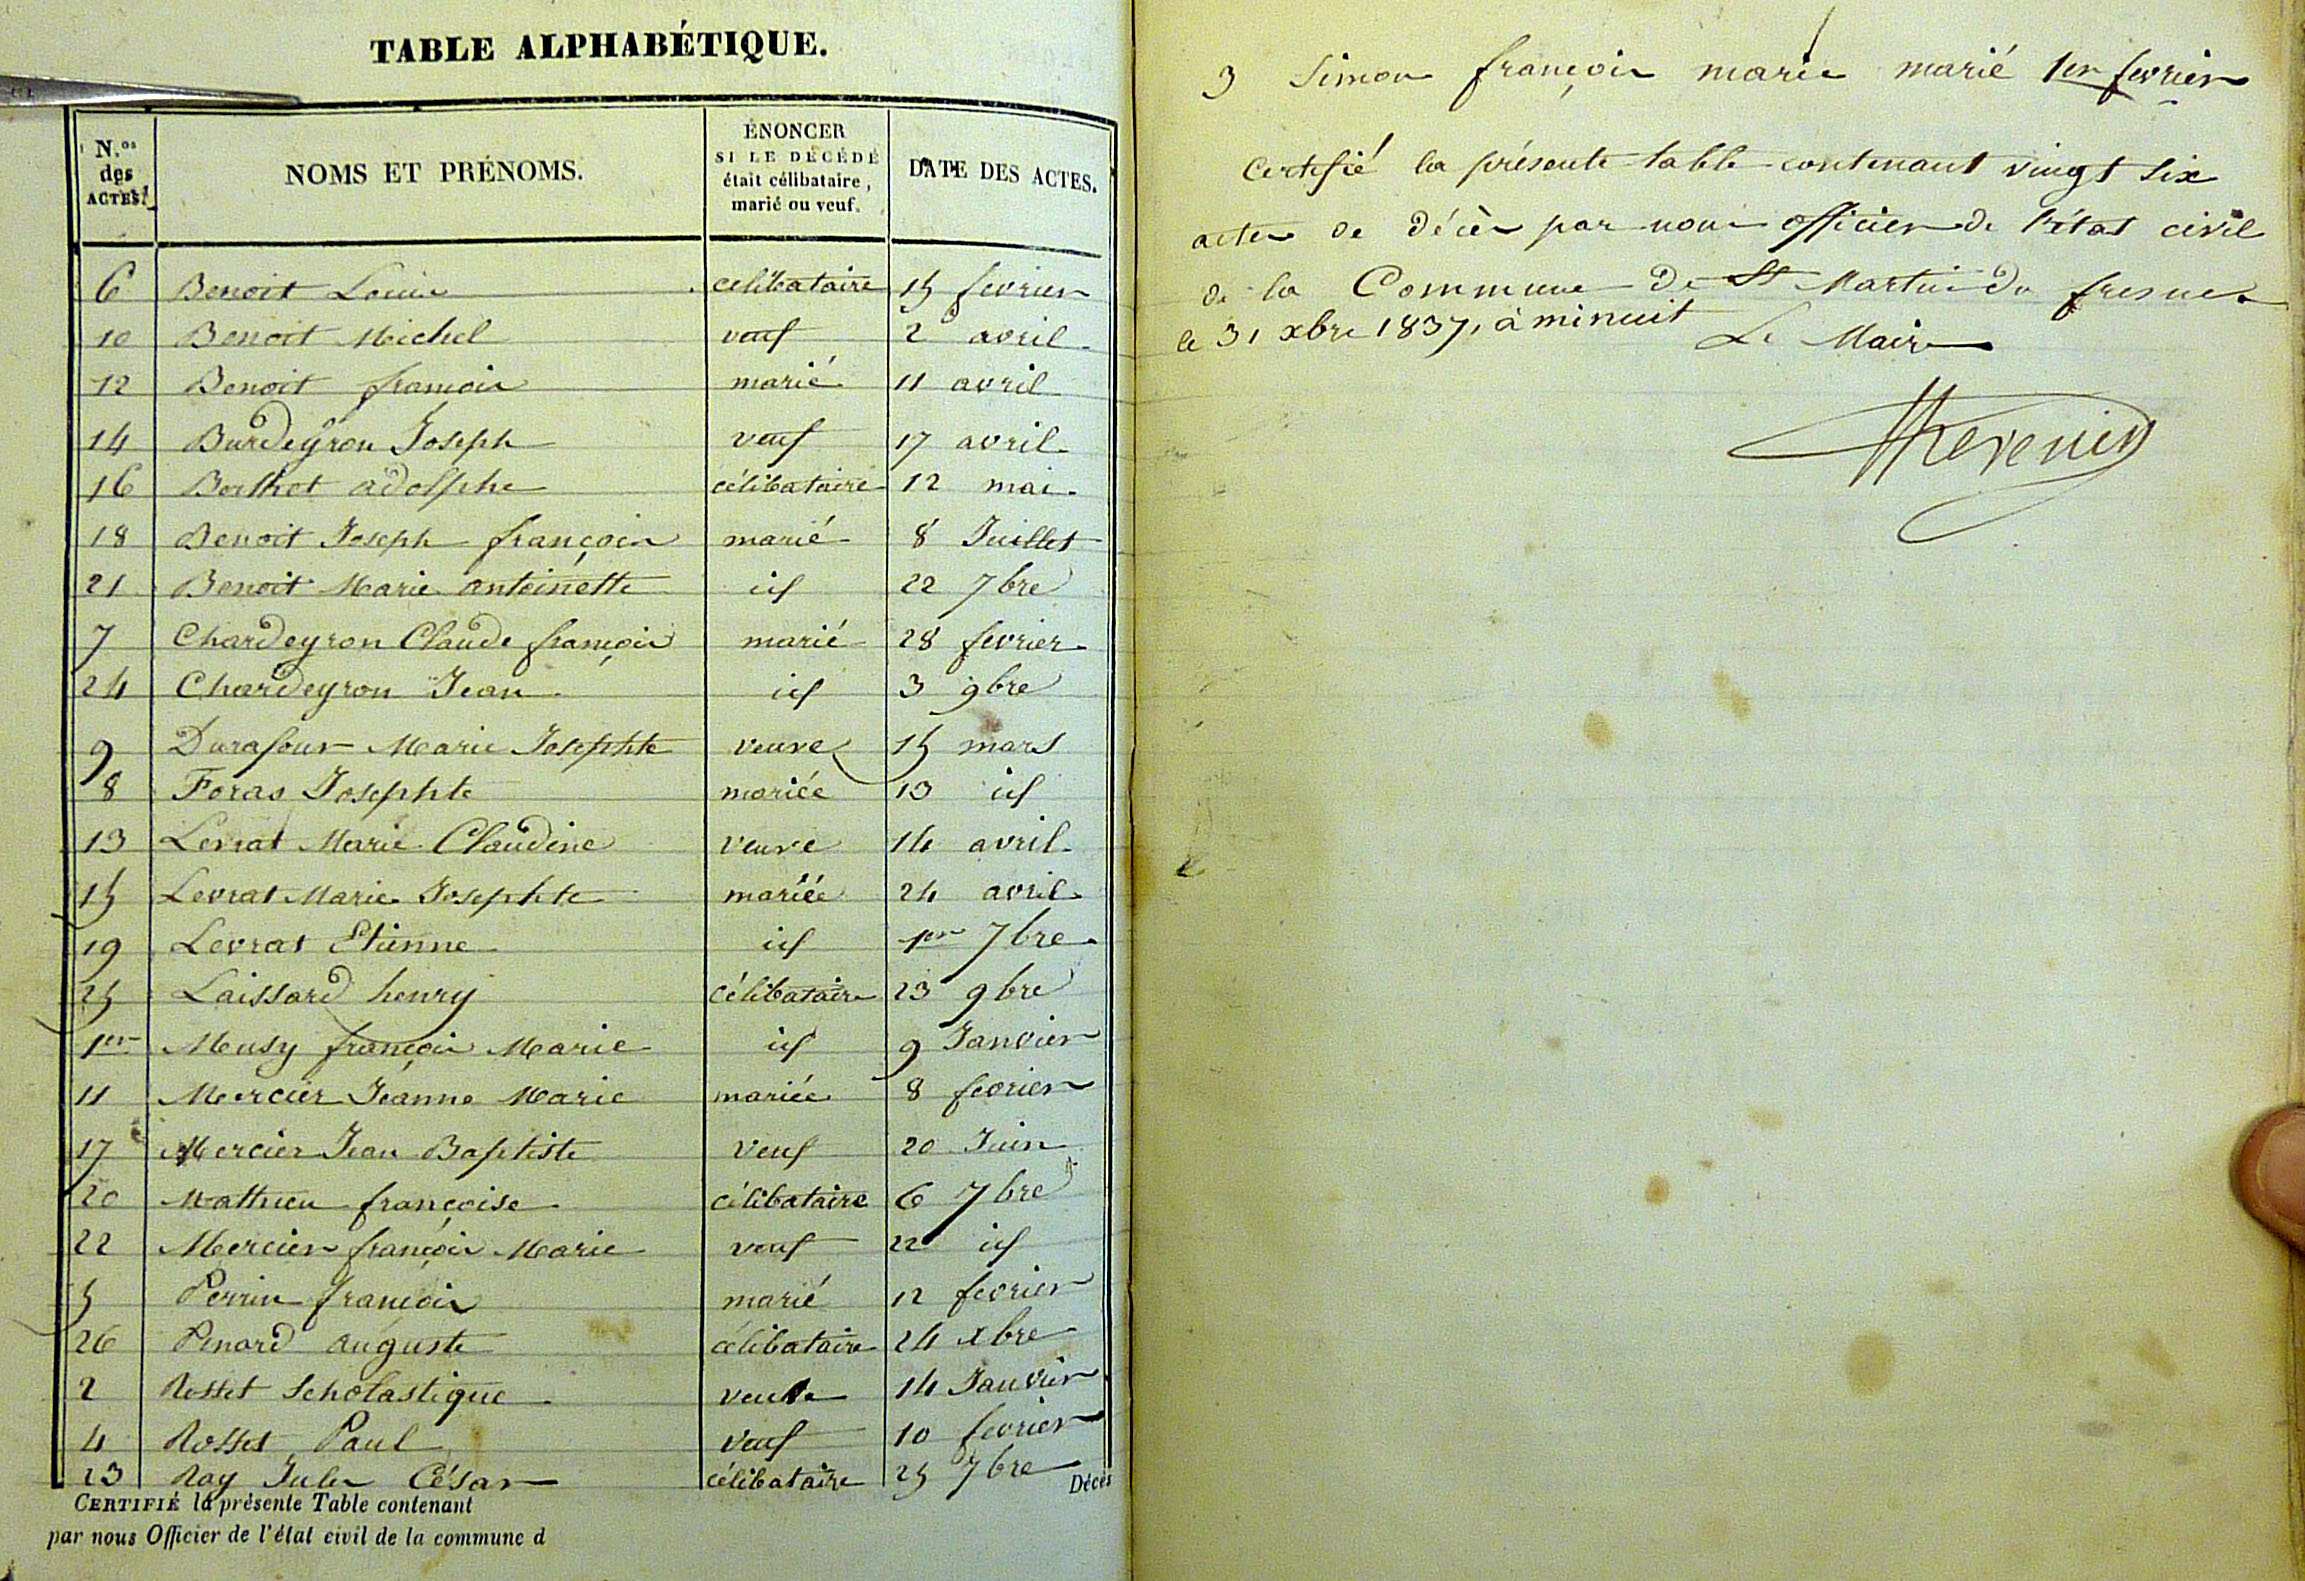 TABLE ALPHABÉTIQUE.
N.os des ACTES. NOMS ET PRÉNOMS. ÉNONCER SI LE DÉCÉDÉ était célibataire, marié ou veuf. DATE DES ACTES.
6 Benoit Louis celibataire 15 fevrier
10 Benoit Michel veuf 2 avril
12 Benoit françois marié 11 avril
14 Burdeyron Joseph veuf 17 avril
16 Berthet adolphe célibataire 12 mai
18 Benoit Joseph françois marié 8 Juillet
21 Benoit Marie antoinette id 22 7bre
7 Chardeyron Claude françois marié 28 fevrier
24 Chardeyron Jean id 3 9bre
9 Durafour Marie Josephte veuve 15 mars
8 Foras Josephte mariée 13 id
13 Levrat Marie Claudine veuve 14 avril
15 Levrat Marie Josephte mariée 24 avril
19 Levrat Etienne id 1er 7bre
25 Laissard henry célibataire 23 9bre
1er Musy françois Marie id 9 Janvier
11 Mercier Jeanne Marie mariée 8 fevrier
17 Mercier Jean Baptiste veuf 20 Juin
20 Mathieu françoise célibataire 6 7bre
22 Mercier françois Marie veuf 22 id
5 Perrin françois marié 12 fevrier
26 Penard auguste célibataire 24 xbre
2 Rosset Scholastique veuve 14 Janvier
4 Rosset Paul veuf 10 fevrier
23 Ray Jules César célibataire 25 7bre
Décès
CERTIFIÉ la présente Table contenant
par nous Officier de l'état civil de la commune d
3 Simon françois marie marié 1er fevrier
Certifié la présente table contenant vingt six
actes de décès par nous officier de l'état civil
de la Commune de St Martin du fresne
le 31 xbre 1837, à minuit
Le Maire
Thevenin